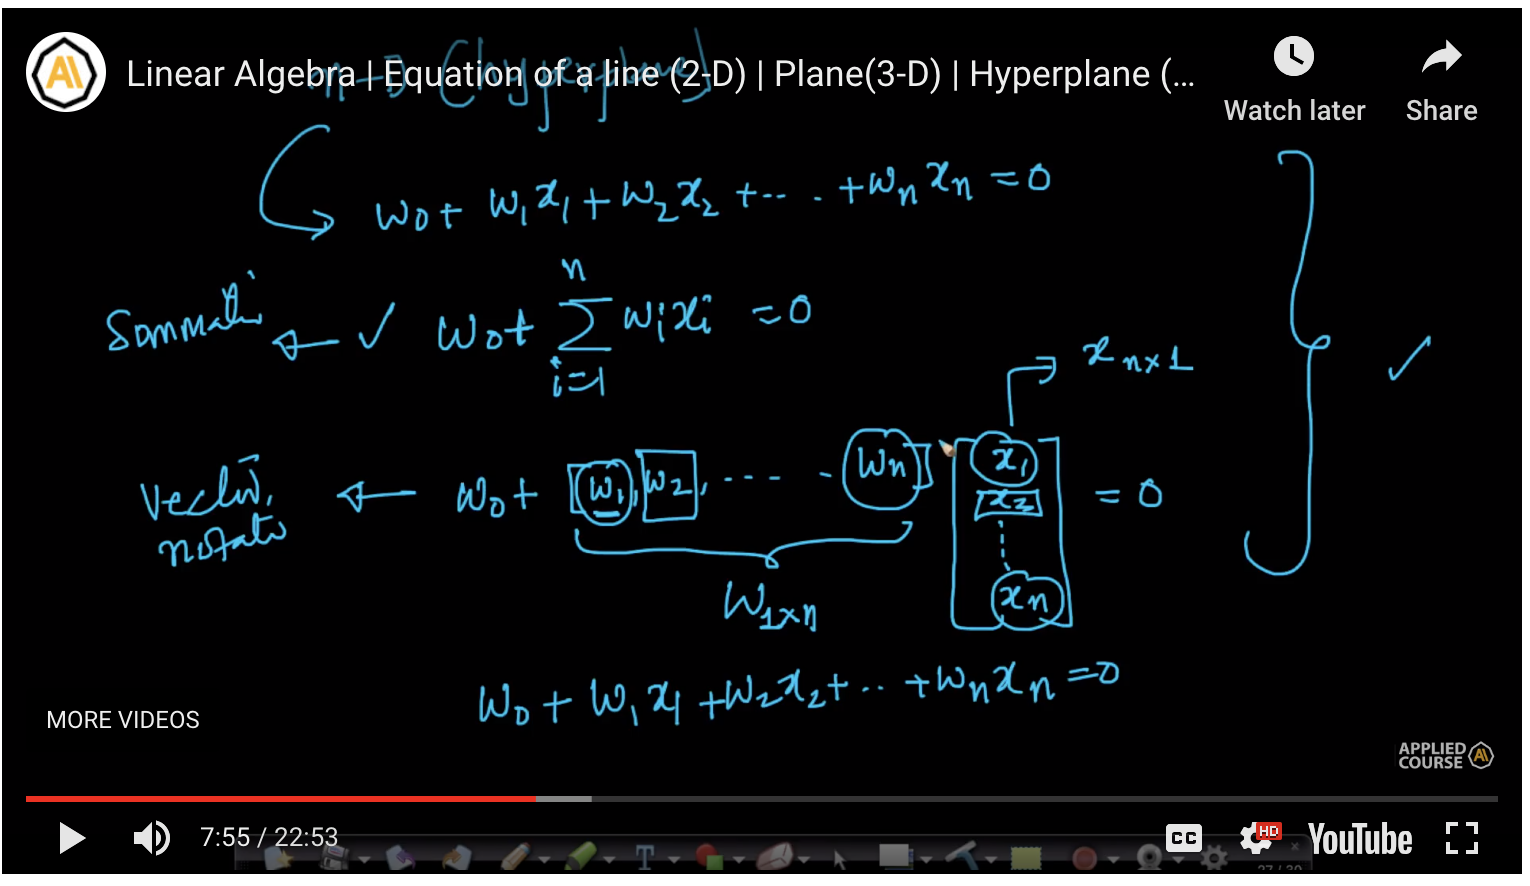 Linear Algebra | Equation of a line (2-D) | Plane(3-D) | Hyperplane (...
n-D (hyperplane)
Watch later
Share
w₀ + w₁x₁ + w₂x₂ + ... . + wₙxₙ = 0
Summati ← ✓ w₀ + ∑ᵢ₌₁ⁿ wᵢxᵢ = 0
→ xₙₓ₁
✓
Vector notatio ← w₀ + [w₁, w₂, ---- - wₙ] [x₁ x₂ ⋮ xₙ] = 0
W₁ₓₙ
w₀ + w₁x₁ + w₂x₂ + .. + wₙxₙ = 0
MORE VIDEOS
APPLIED
COURSE
7:55 / 22:53
CC
HD
YouTube